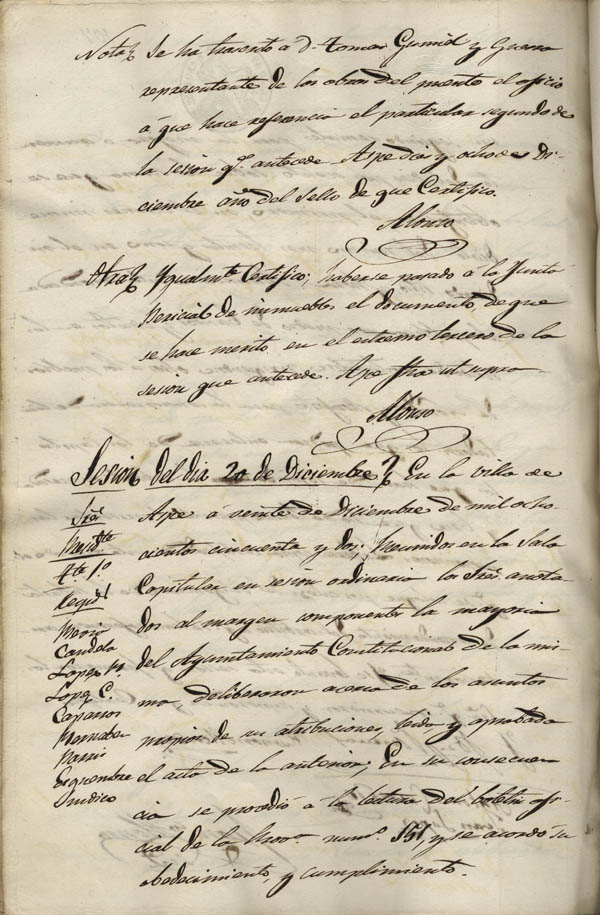 Nota. Se ha trascrito á Dn. Tomas Gumiel y Guerra
representante de las obras del puente el oficio
á que hace referencia el particular segundo de
la sesion qe. antecede Aspe diez y ocho de Di-
ciembre año del Sello de que Certifico.
Alonso
Otra. Ygualmte. Certifico; haberse pasado á la Junta
Pericial de inmuebles el documento, de que
se hace merito en el estremo tercero de la
sesion que antecede. Aspe fha ut supra
Alonso
Sesion del dia 20 de Diciembre. En la villa de
Aspe á veinte de Diciembre de mil ocho-
cientos cincuenta y dos; Reunidos en la Sala
Capitular en sesion ordinaria los Sres. anota-
dos al margen componentes la mayoria
del Ayuntamiento Constitucional de la mis-
ma, deliberaron acerca de los asuntos
propios de su atribuciones, leida y aprobada
el acta de la anterior; En su consecuen
cia se procedió á la lectura del boletin ofi-
cial de la Prova. numo. 151, y se acordó su
obedecimiento, y cumplimiento.
Sres.
Presidte.
Tte. 1o.
Regids.
Candela
Lopez M.
Lopez C.
Caparros
Esquembre
Sindico